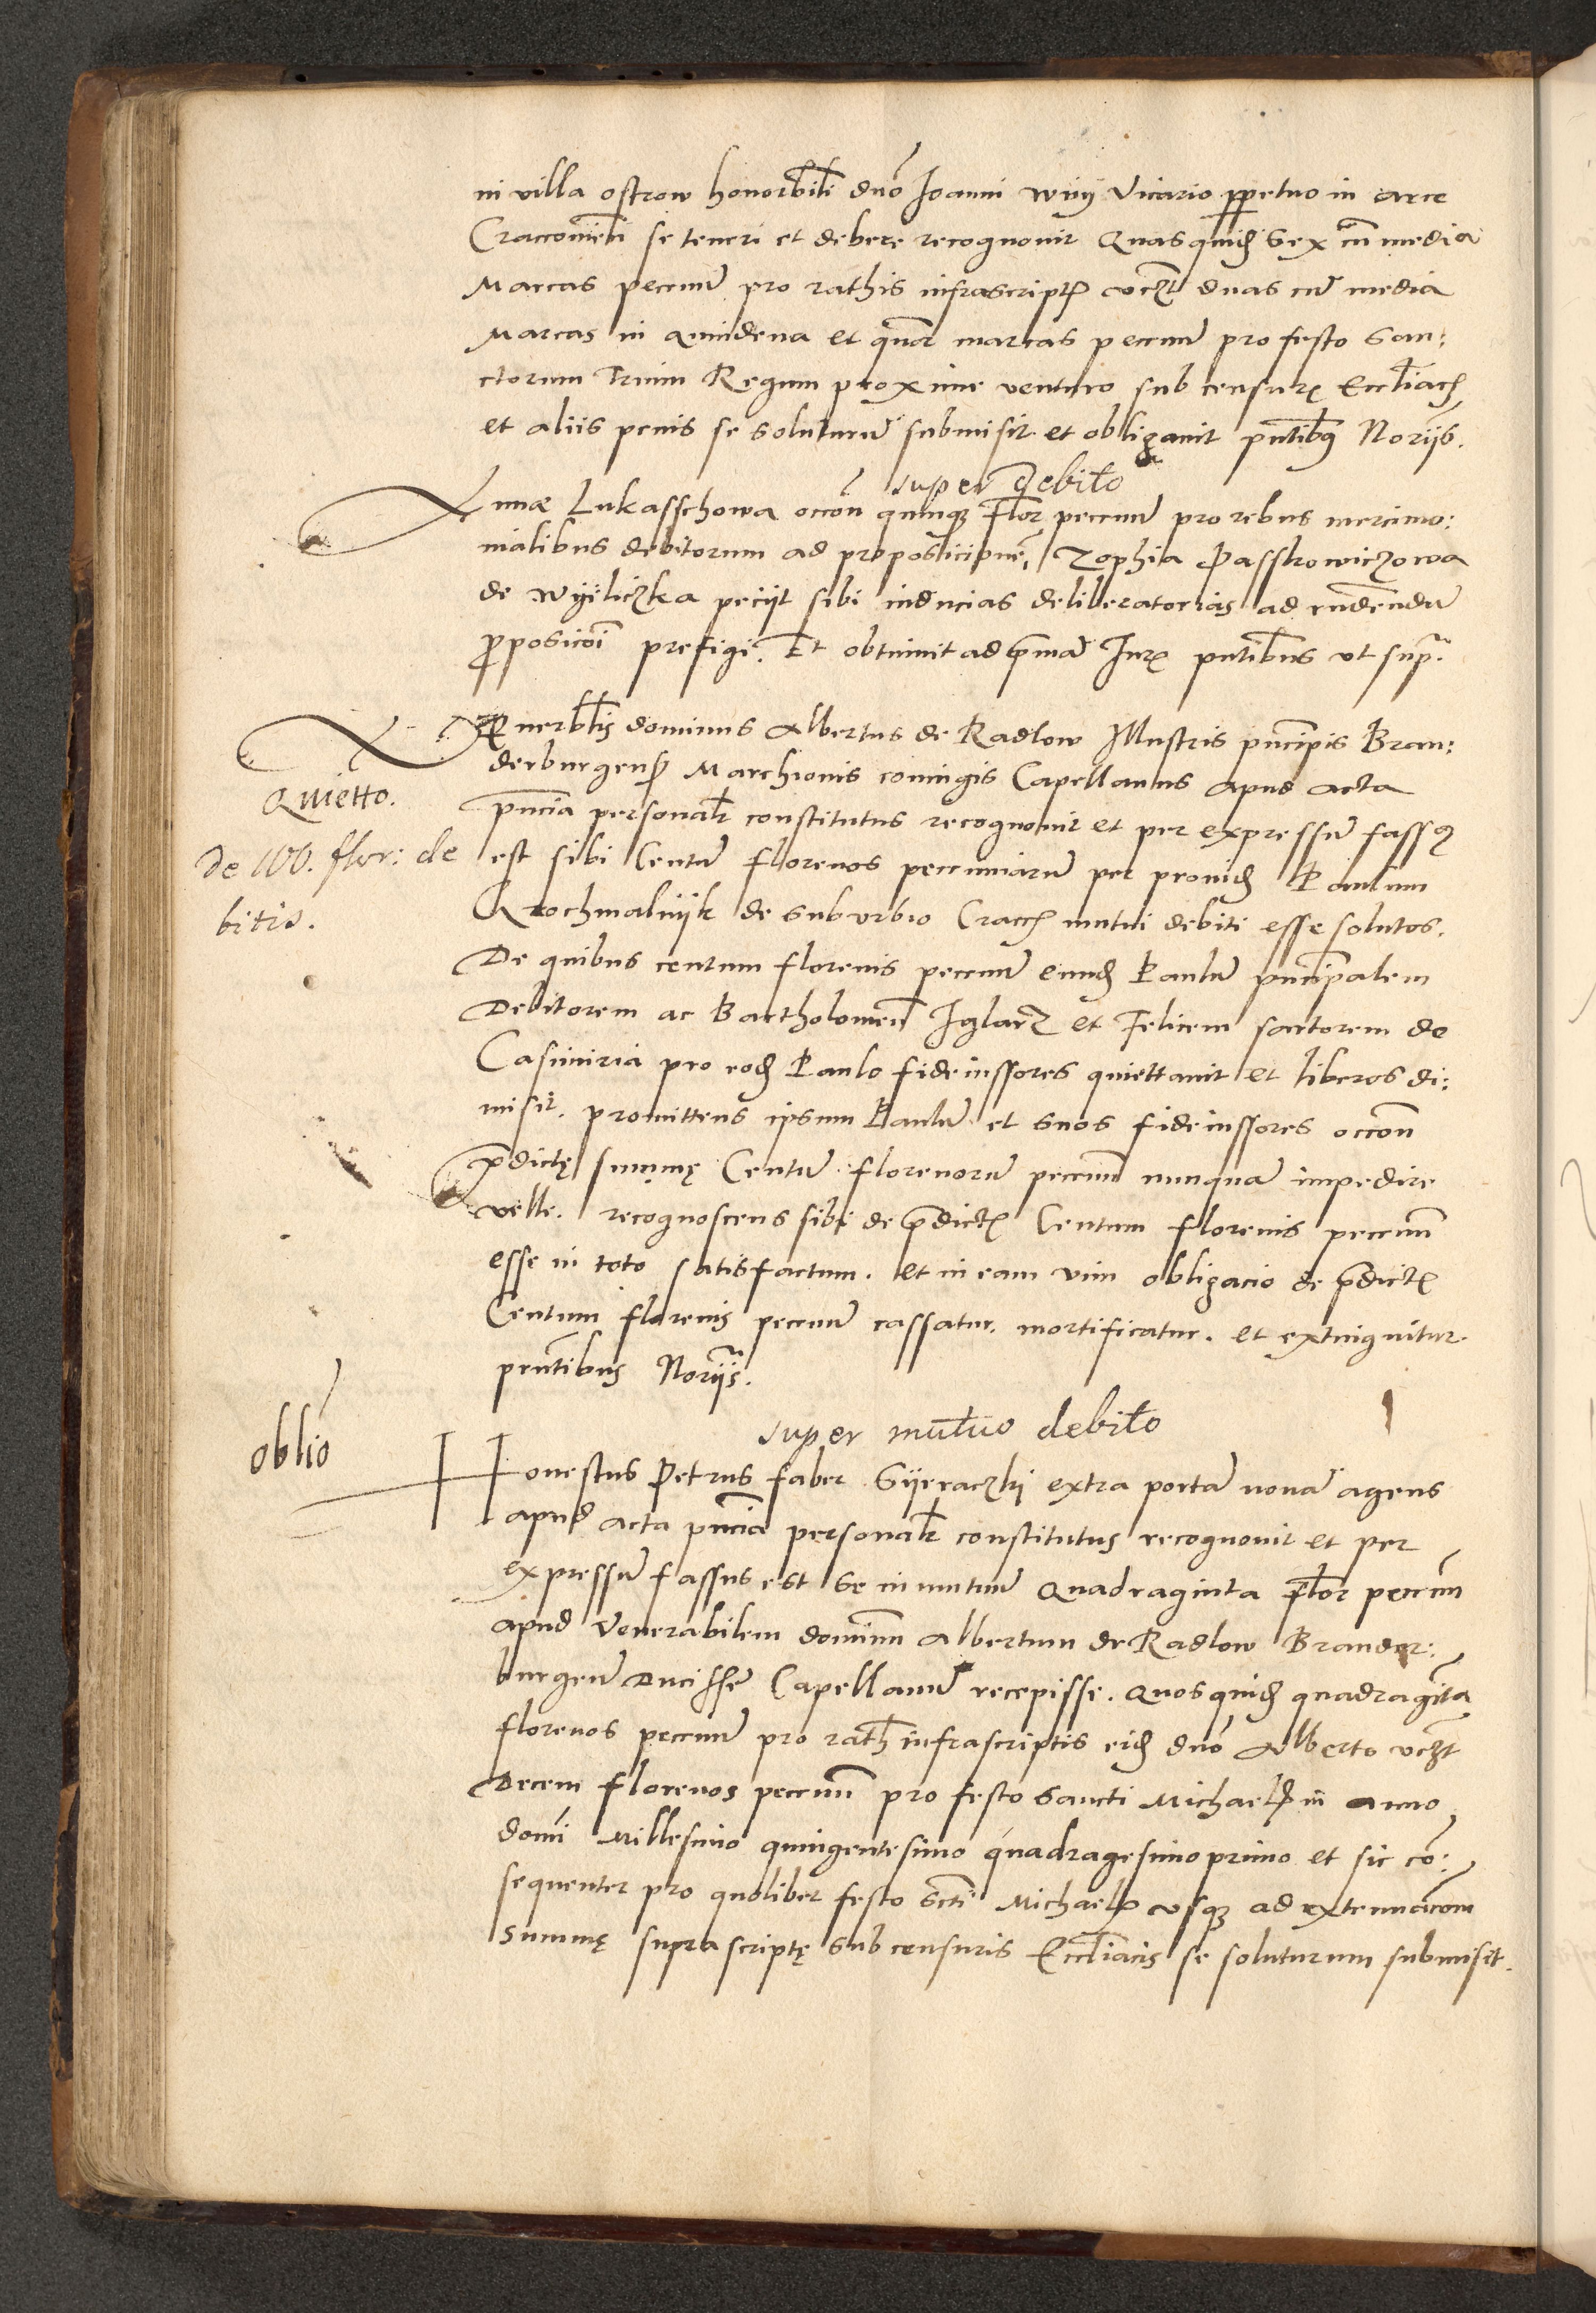 in villa ostrow honorbili dno Joanni wyy Vicario ppetuo in arce
Craccovien se teneri et debere recognovit Quas quid sex cu media
Marcas peccun pro rathis infrascript vcꝫt duas cu media
Marcas in quindena et quor marcas peccun pro festo san:
ctorum Trium Regum proxime venturo sub censur Eccliac
et aliis penis se soluturu submisit et obligavit pntibq Noriis.
super debito
Annæ Lukasschowa occon quinqꝫ Flor peccun pro rebus mercimo:
nialibus debitorum ad proposicione, Zophia Passkowiczowa
de Wyeliczka peciit sibi inducias deliberatorias ad rndendu
pposicoi prefigi. Et obtinuit ad pma Jur pntibus vt supra
Venerblis dominus Albertus de Radlow Illustris pncipis Bran:
derburgens Marchionis coniugis Capellanus apud acta
Quietto.
pncia personalr constitutus recognovit et per expressu fassq
de 100. flor: de
bitis.
est sibi Centu florenos peccuniaru per provid Paulum
Krochmalnyk de suburbio Cracc mutui debiti esse solutos.
De quibus centum florenis peccun eund Paulu pncipalem
Debitorem ac Bartholomeu Jglarz et Felicem sartorem de
Casimiria pro eod Paulo fideiussores quiettavit et liberos di:
misit. promittens ipsum Paulu et suos fideiussores occon
pdictę summę Centu florenoru peccun nunqua impedire
velle. recognoscens sibi de pdict Centum florenis peccun
esse in toto satisfactum. et in eam vim obligacio de pdict
Centum florenis peccun cassatur. mortificatur. et extinguitur.
pntibus Noriis.
super mutuo debito
oblio
Honestus Petrus faber Syeraczki extra porta nova agens
apud acta pncia personalr constitutus recognovit et per
expressu fassus est se in mutuu Quadraginta flor peccun
apud Venerabilem dominu Albertum de Radlow Brander:
burgen Ducisse Capellanu recepisse. Quos quid quadraginta
florenos peccun pro rath infrascriptis eid dno Alberto vcꝫt
Decem florenos peccun pro festo sancti Michael in anno
domi Millesimo quingentesimo quadragesimo primo et sic co:
sequenter pro quolibet festo scti Michael usqꝫ ad extenuacom
summę suprascriptę sub censuris Eccliacis se soluturum submisit.